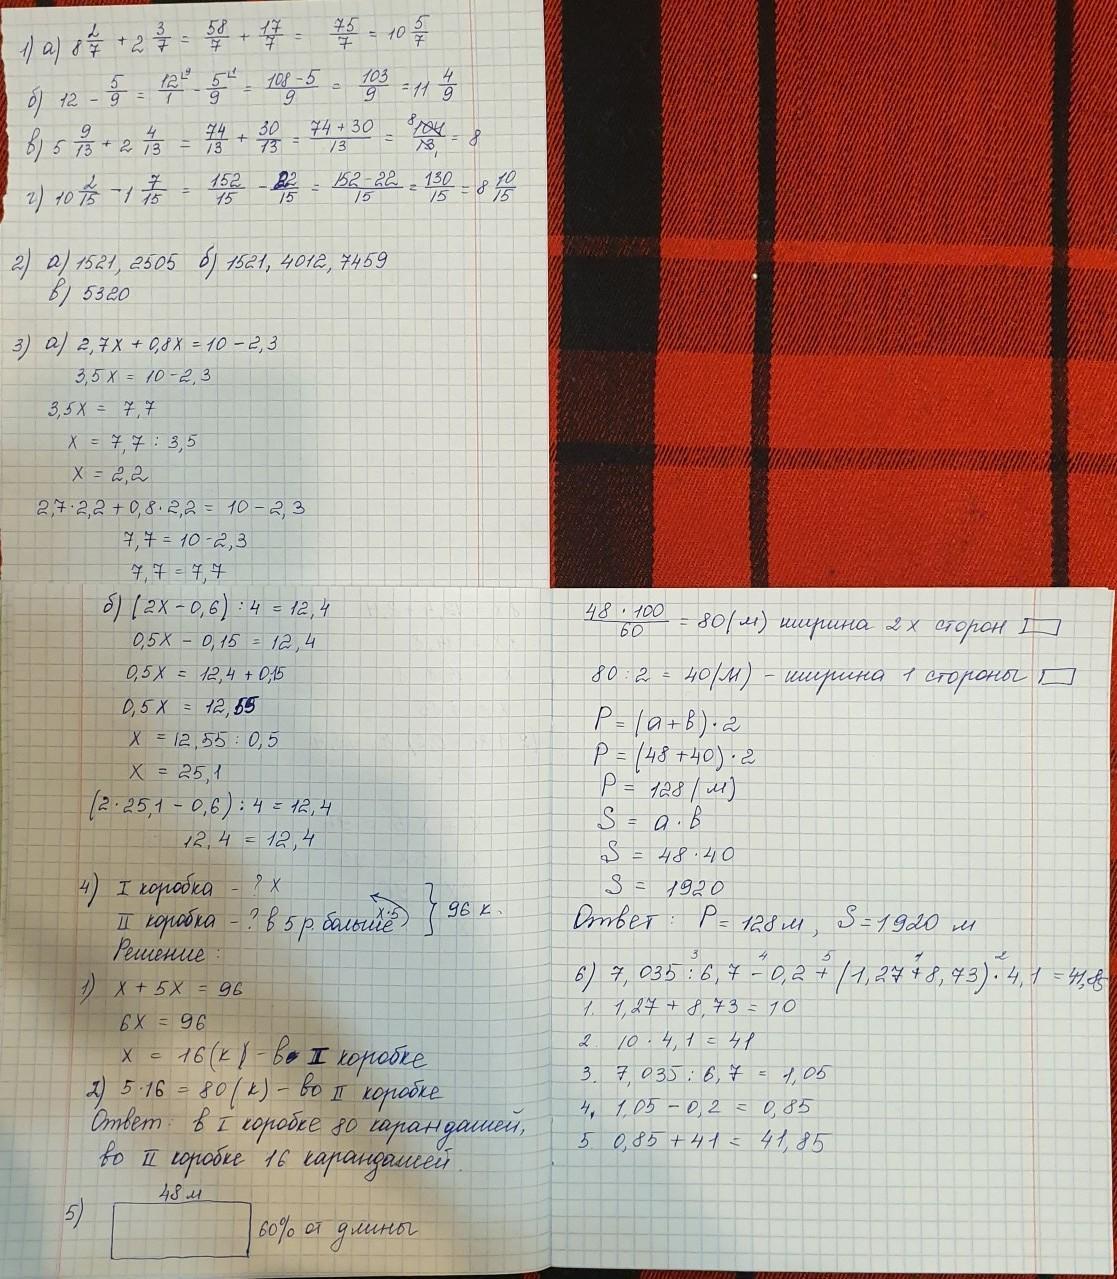 1) а) 8 2/7 + 2 3/7 = 58/7 + 17/7 = 75/7 = 10 5/7
б) 12 - 5/9 = 12⌊9/1 - 5⌊1/9 = 108-5/9 = 103/9 = 11 4/9
в) 5 9/13 + 2 4/13 = 74/13 + 30/13 = 74+30/13 = 8 104/13 1 = 8
г) 10 2/15 - 1 7/15 = 152/15 - 22/15 = 152-22/15 = 130/15 = 8 10/15
2) а) 1521, 2505 б) 1521, 4012, 7459
в) 5320
3) а) 2,7x + 0,8x = 10 - 2,3
3,5x = 10 - 2,3
3,5x = 7,7
x = 7,7 : 3,5
x = 2,2
2,7·2,2 + 0,8·2,2 = 10 - 2,3
7,7 = 10 - 2,3
7,7 = 7,7
б) (2x - 0,6) : 4 = 12,4
0,5x - 0,15 = 12,4
0,5x = 12,4 + 0,15
0,5x = 12,55
x = 12,55 : 0,5
x = 25,1
(2·25,1 - 0,6) : 4 = 12,4
12,4 = 12,4
4) I коробка - ? x
II коробка - ? в 5 р. больше x·5 } 96 к.
Решение:
1) x + 5x = 96
6x = 96
x = 16(к) - во I коробке
2) 5·16 = 80(к) - во II коробке
Ответ: в I коробке 80 карандашей,
во II коробке 16 карандашей.
48 м
5) 60% от длины
48·100/60 = 80(м) ширина 2х сторон
80 : 2 = 40(м) - ширина 1 стороны
P = (a+в)·2
P = (48+40)·2
P = 128(м)
S = a·в
S = 48·40
S = 1920
Ответ: P = 128м, S = 1920 м
3 4 5 1 2
6) 7,035 : 6,7 - 0,2 + (1,27 + 8,73)·4,1 = 41,85
1. 1,27 + 8,73 = 10
2. 10·4,1 = 41
3. 7,035 : 6,7 = 1,05
4. 1,05 - 0,2 = 0,85
5. 0,85 + 41 = 41,85